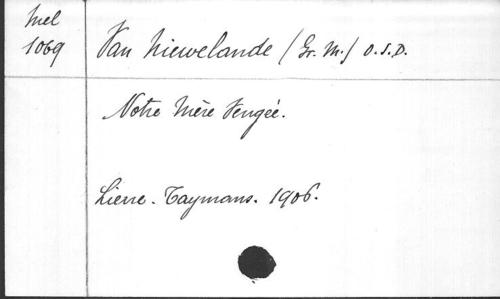 Mel
1069
Van Niewelande (Gr. M.) O.S.D.
Notre Mère Vengée.
Lierre. Taymans. 1906.